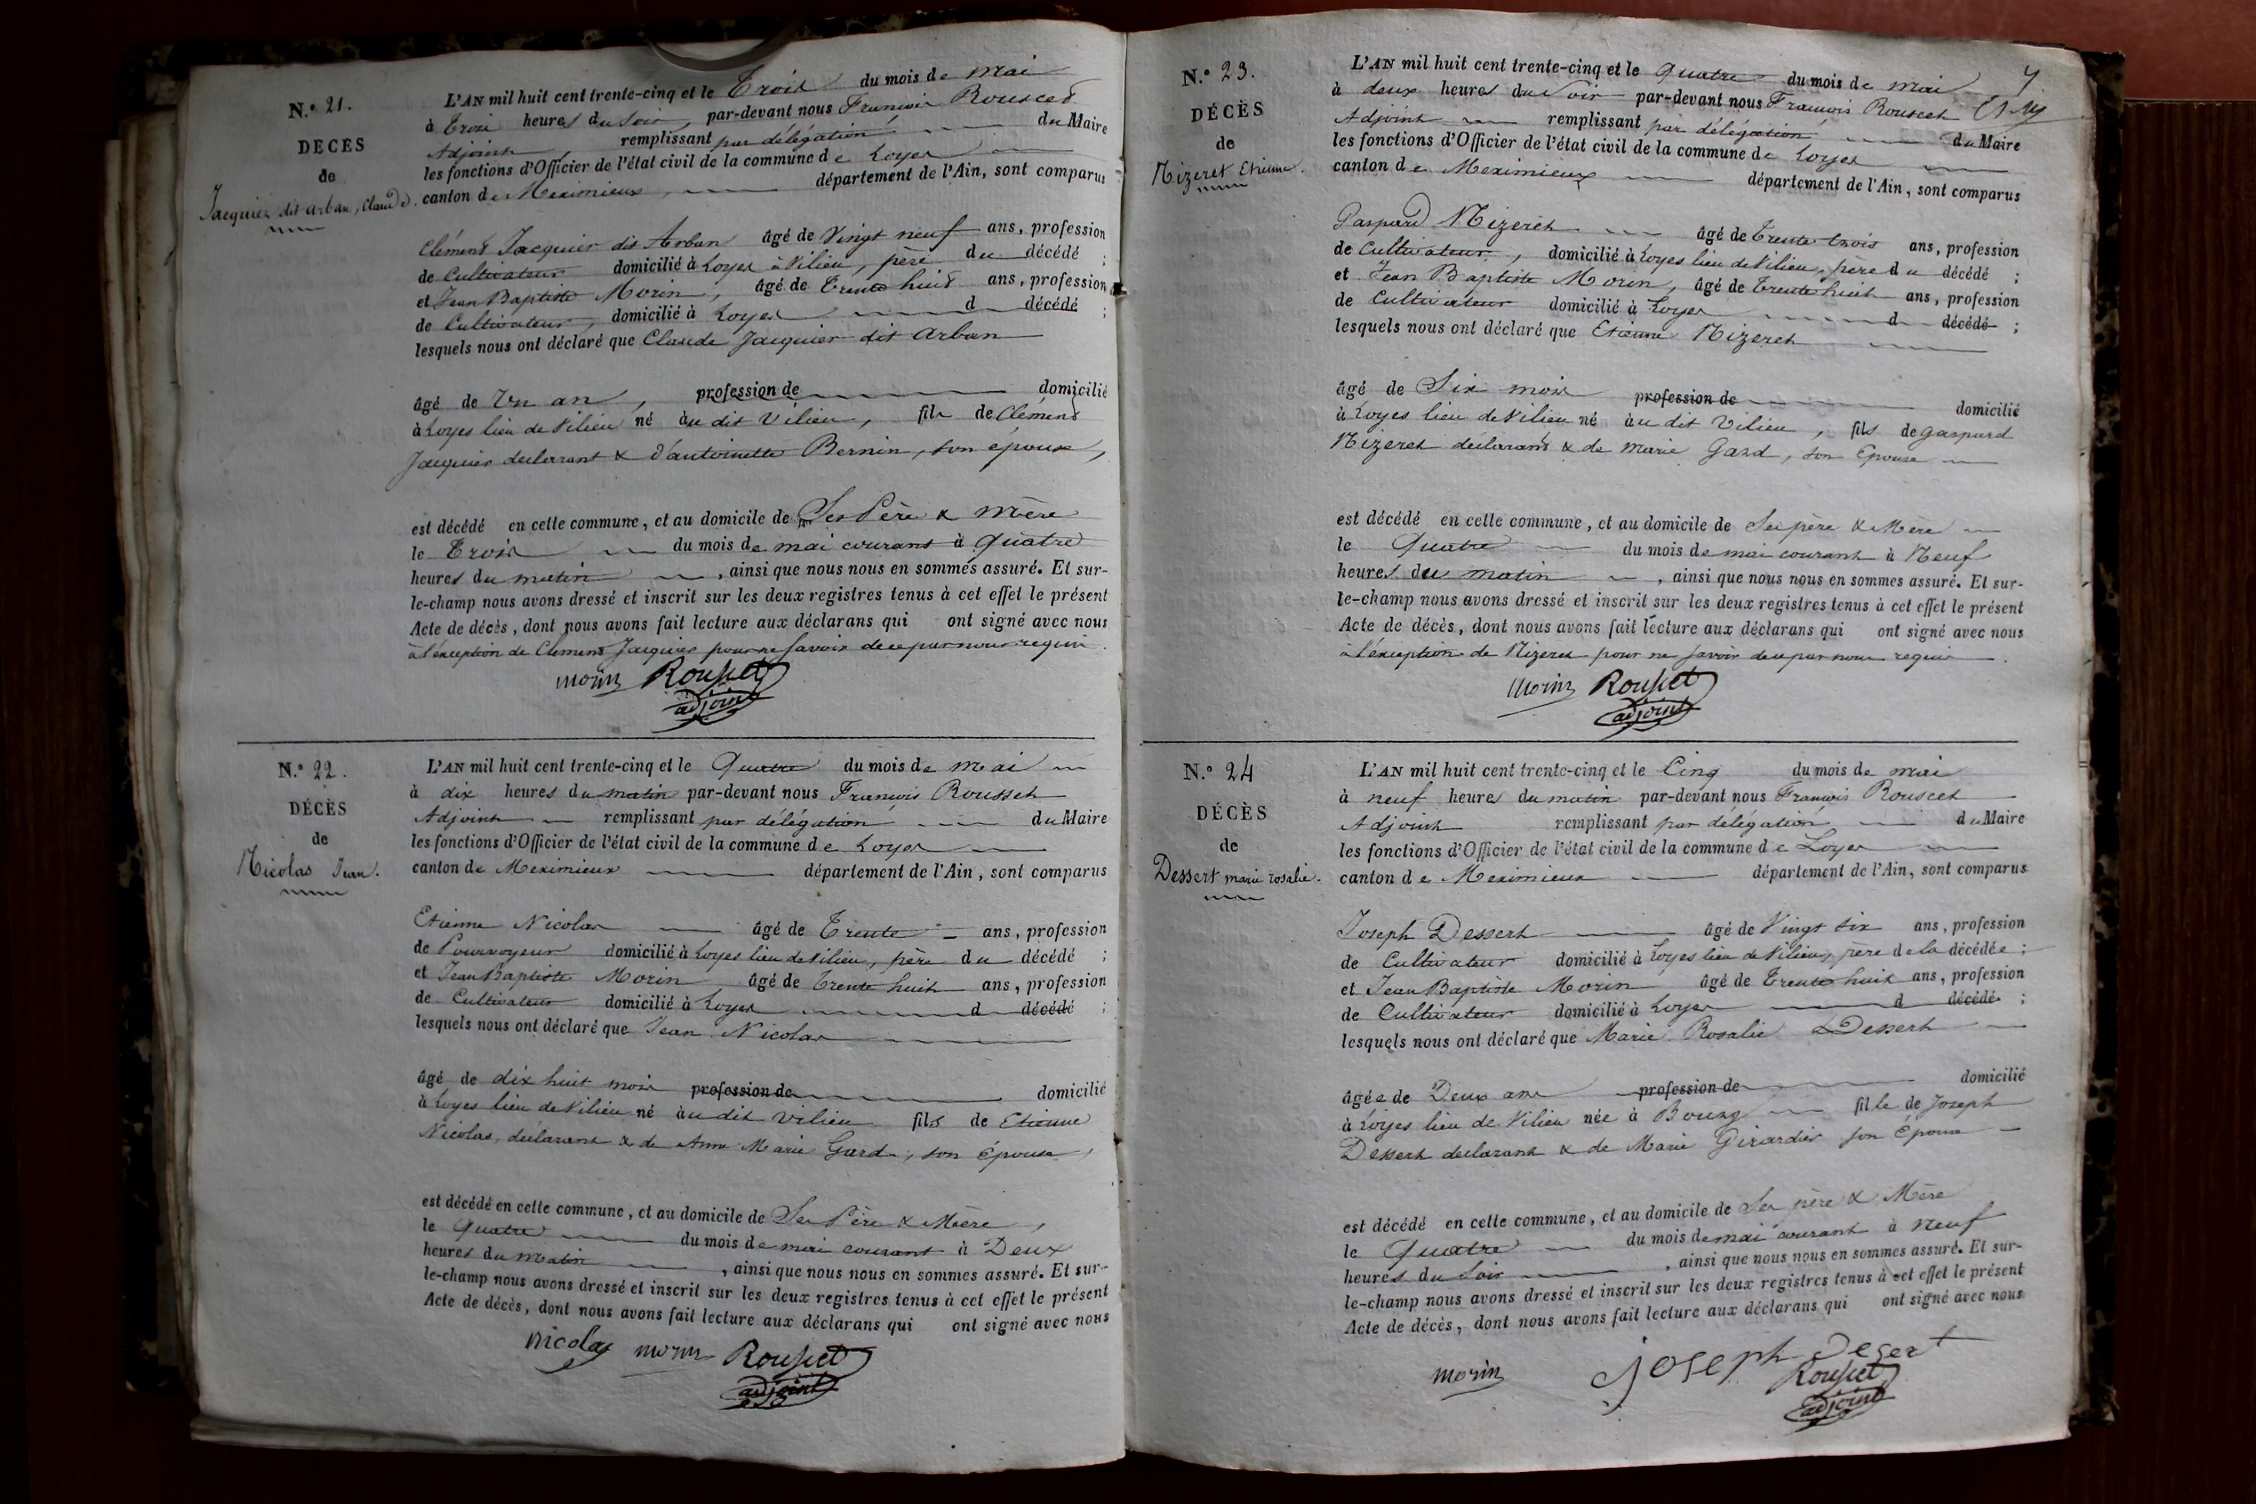 N.° 21.
DÉCÈS
de
Jacquier dit arban, Claude.
L'AN mil huit cent trente-cinq et le Trois du mois de mai
à Trois heures du Soir, par-devant nous François Rousset
Adjoint, remplissant par délégation du Maire
les fonctions d'Officier de l'état civil de la commune de Loyes
canton de Meximieux, département de l'Ain, sont comparus
Clément Jacquier dit Arban âgé de Vingt neuf ans, profession
de Cultivateur domicilié à Loyes à Vilieu, père du décédé ;
et Jean Baptiste Morin, âgé de Trente huit ans, profession
de Cultivateur, domicilié à Loyes d décédé ;
lesquels nous ont déclaré que Claude Jacquier dit arban
âgé de Un an, profession de domicilié
à Loyes lieu de Vilieu né au dit Vilieu, fils de Clément
Jacquier declarant & d'antoinette Bernin, son épouse,
est décédé en cette commune, et au domicile de Ses Père & mère
le Trois du mois de mai courant à Quatre
heures du matin, ainsi que nous nous en sommes assuré. Et sur-
le-champ nous avons dressé et inscrit sur les deux registres tenus à cet effet le présent
Acte de décès, dont nous avons fait lecture aux déclarans qui ont signé avec nous
à l'éxception de Clément Jacquier pour ne Savoir de ce par nous requis.
morin Rousset
adjoint
N.° 22.
DÉCÈS
de
Nicolas Jean.
L'AN mil huit cent trente-cinq et le Quatre du mois de mai
à dix heures du matin par-devant nous François Rousset
Adjoint remplissant par délégation du Maire
les fonctions d'Officier de l'état civil de la commune de Loyes
canton de Meximieux département de l'Ain, sont comparus
Etienne Nicolas âgé de Trente ans, profession
de Pourvoyeur domicilié à Loyes lieu de Vilieu, père du décédé ;
et Jean Baptiste Morin âgé de Trente huit ans, profession
de Cultivateur domicilié à Loyes d décédé ;
lesquels nous ont déclaré que Jean Nicolas
âgé de dix huit mois profession de domicilié
à Loyes lieu de Vilieu né au dit vilieu fils de Etienne
Nicolas, déclarant & de Anne Marie Gard, son Épouse,
est décédé en cette commune, et au domicile de Ses Père & Mère,
le Quatre du mois de mai courant à Deux
heures du matin, ainsi que nous nous en sommes assuré. Et sur-
le-champ nous avons dressé et inscrit sur les deux registres tenus à cet effet le présent
Acte de décès, dont nous avons fait lecture aux déclarans qui ont signé avec nous
nicolas morin Rousset
adjoint
7
N.° 23.
DÉCÈS
de
Nizeret Etienne.
L'AN mil huit cent trente-cinq et le Quatre du mois de mai
à deux heures du Soir par-devant nous François Rousset
Adjoint remplissant par délégation du Maire
les fonctions d'Officier de l'état civil de la commune de Loyes
canton de Meximieux département de l'Ain, sont comparus
Gaspard Nizeret âgé de Trente trois ans, profession
de Cultivateur, domicilié à Loyes lieu de Vilieu, père du décédé ;
et Jean Baptiste Morin, âgé de Trente huit ans, profession
de Cultivateur domicilié à Loyes d décédé ;
lesquels nous ont déclaré que Etienne Nizeret
âgé de Six mois profession de domicilié
à Loyes lieu de Vilieu né au dit Vilieu, fils de gaspard
Nizeret declarant & de marie Gard, son Epouse
est décédé en cette commune, et au domicile de Ses père & Mère
le Quatre du mois de mai courant à Neuf
heures du matin, ainsi que nous nous en sommes assuré. Et sur-
le-champ nous avons dressé et inscrit sur les deux registres tenus à cet effet le présent
Acte de décès, dont nous avons fait lecture aux déclarans qui ont signé avec nous
à l'éxception de Nizeret pour ne Savoir de ce par nous requis.
morin Rousset
adjoint
N.° 24
DÉCÈS
de
Dessert marie rosalie.
L'AN mil huit cent trente-cinq et le Cinq du mois de mai
à neuf heures du matin par-devant nous François Rousset
Adjoint remplissant par délégation du Maire
les fonctions d'Officier de l'état civil de la commune de Loyes
canton de Meximieux département de l'Ain, sont comparus
Joseph Dessert âgé de Vingt six ans, profession
de Cultivateur domicilié à Loyes lieu de Vilieu, père de la décédée ;
et Jean Baptiste Morin âgé de Trente huit ans, profession
de Cultivateur domicilié à Loyes d décédé ;
lesquels nous ont déclaré que Marie Rosalie Dessert
âgée de Deux ans profession de domicilié
à Loyes lieu de Vilieu née à Bourg fille de Joseph
Dessert declarant & de Marie Girardier son Epouse
est décédé en cette commune, et au domicile de Ses père & Mère
le Quatre du mois de mai courant à neuf
heures du Soir, ainsi que nous nous en sommes assuré. Et sur-
le-champ nous avons dressé et inscrit sur les deux registres tenus à cet effet le présent
Acte de décès, dont nous avons fait lecture aux déclarans qui ont signé avec nous
morin joseph desert
Rousset
adjoint